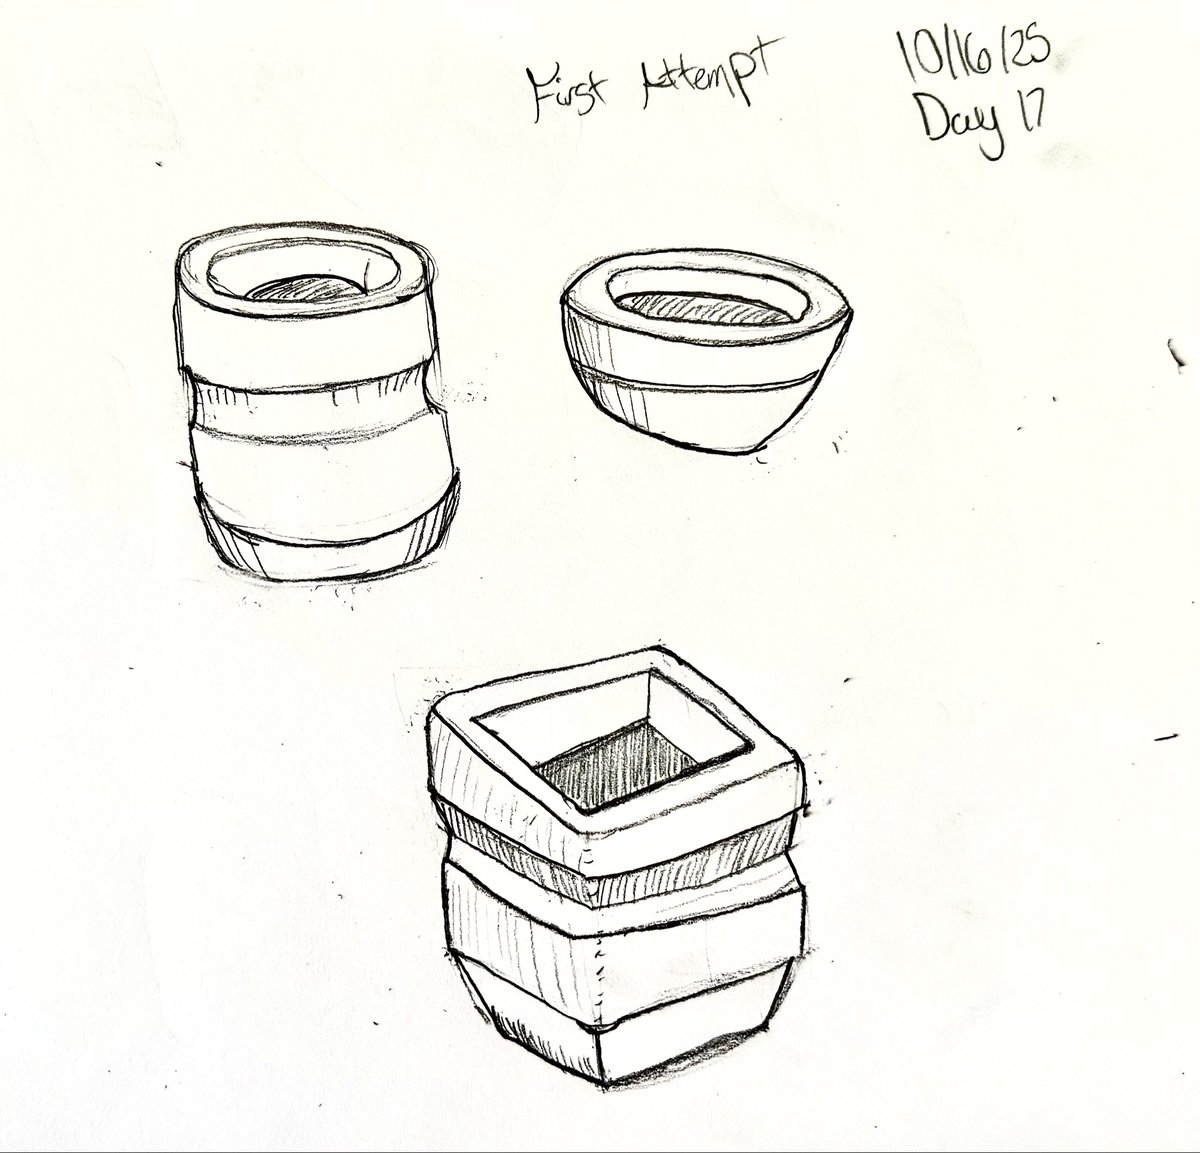 First Attempt
10/16/25
Day 17